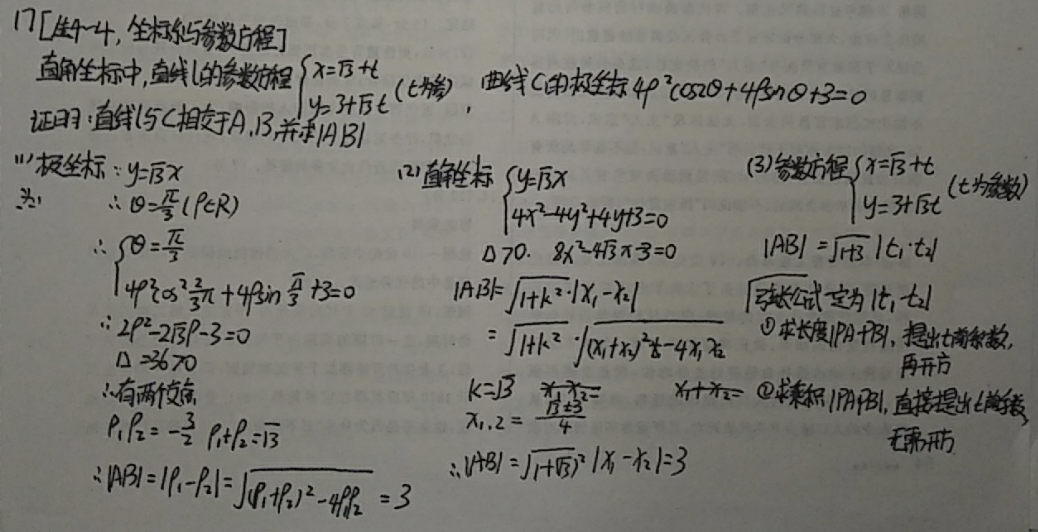 17[选4-4,坐标系与参数方程]
直角坐标中,直线l的参数方程{x=√3+t y=3+√3t (t为参) 曲线C的极坐标4ρ²cos2θ+4ρsinθ+3=0
证明:直线l与C相交于A,B,并求|AB|
(1)极坐标:y=√3x
∴θ=π/3(ρ∈R)
∴{θ=π/3
4ρ²cos2/3π+4ρsinπ/3+3=0
∴2ρ²-2√3ρ-3=0
Δ=36>0
∴有两个交点
ρ₁ρ₂=-3/2 ρ₁+ρ₂=√3
∴|AB|=|ρ₁-ρ₂|=√(ρ₁+ρ₂)²-4ρ₁ρ₂=3
(2)直角坐标{y=√3x
4x²-4y²+4y+3=0
Δ>0. 8x²-4√3x-3=0
|AB|=√1+k²·|x₁-x₂|
=√1+k²·√(x₁+x₂)²-4x₁x₂
k=√3 x₁+x₂=
x₁,₂=√3±3/4
∴|AB|=√1+(√3)²|x₁-x₂|=3
(3)参数方程{x=√3+t
y=3+√3t (t为参数)
|AB|=√1+3|t₁-t₂|
弦长公式定为|t₁-t₂|
①求长度|PA+PB|,提出t前系数,
再开方
②求乘积|PA||PB|,直接提出t前系数,
无需开方